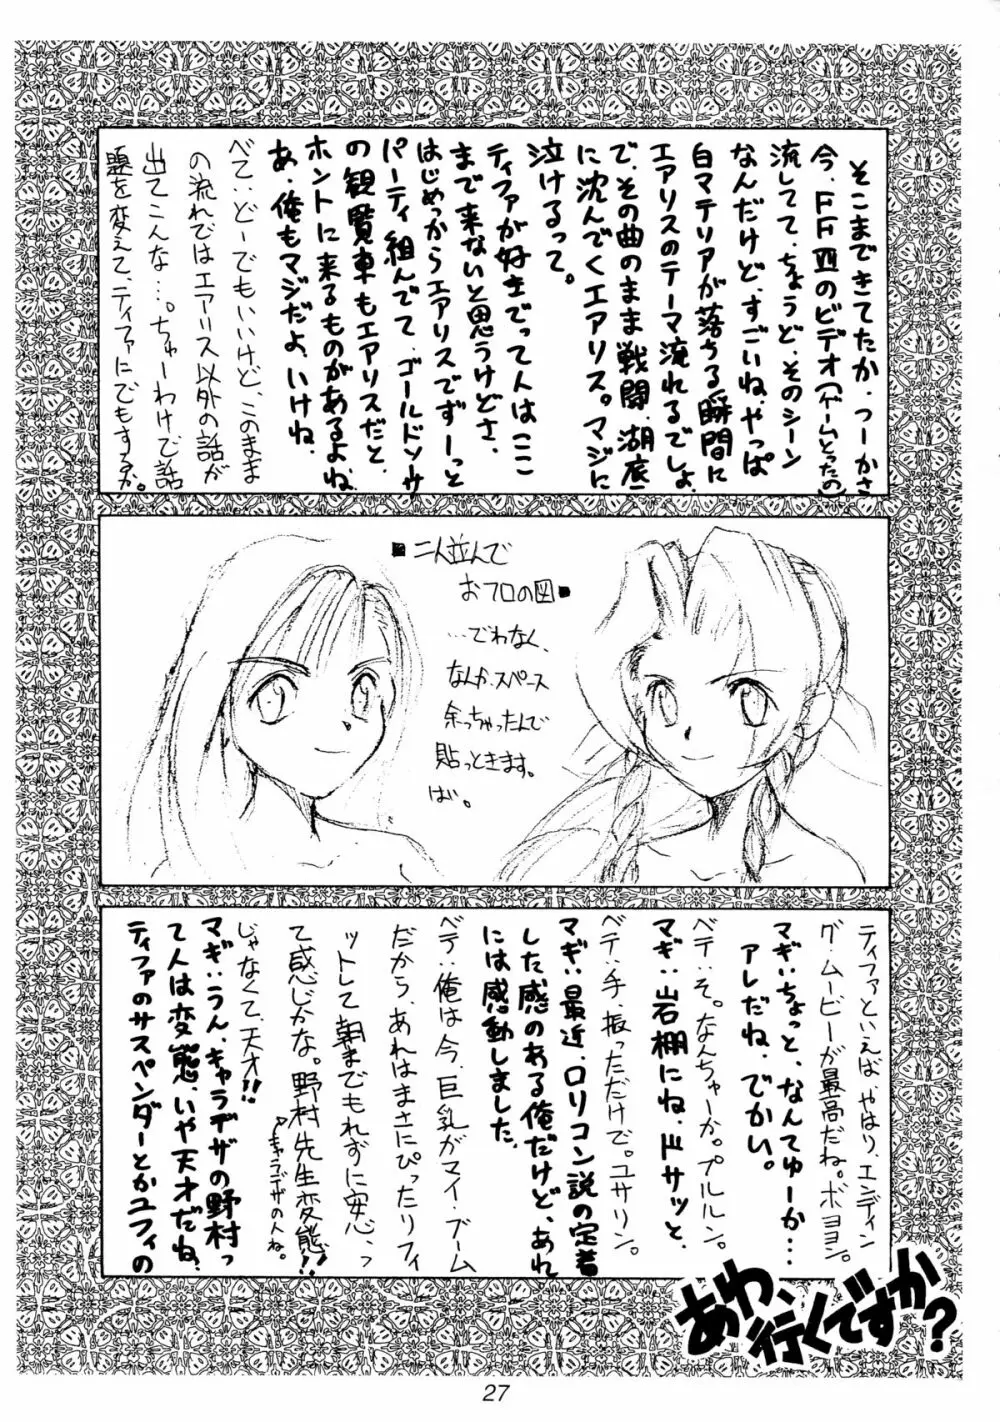 そこまできてたか。つーかさ
今、FFⅦのビデオ(ゲームとったの)
流してて、ちょうど、そのシーン
なんだけど、すごいね、やっぱ
白マテリアが落ちる瞬間に
エアリスのテーマ流れるでしょ
で、その曲のまま戦闘、湖底
に沈んでくエアリス。マジに
泣けるって。
ティファが好きでって人はここ
まで来ないと思うけどさ、
はじめっからエアリスでずーっと
パーティ組んでて、ゴールドソーサ
の観覧車もエアリスだと、
ホントに来るものがあるよね
あ、俺もマジだよ、いけね
ベて:どーでもいいけど、このまま
の流れではエアリス以外の話が
出てこんな…。ちゅーわけで話
題を変えて、ティファにでもするか。
■二人並んで
おフロの図■
…でわなく、
なんか、スペース
余っちゃったんで
貼っときます。
ば。
ティファといえば、やはり、エンディン
グ・ムービーが最高だね。ボヨヨン。
マギ:ちょっと、なんてゅーか…
アレだね、でかい。
ベテ:そ。なんちゃーか。プルルン。
マギ:岩棚にね、ドサッと
ベテ:手、振っただけで。ユサリン。
マギ:最近、ロリコン説の定着
した感のある俺だけど、あれ
には感動しました。
ベテ:俺は今、巨乳がマイ・ブーム
だから、あれはまさにぴったりフィ
ットして朝までもれずに安心、っ
て感じかな。野村先生変態!!
↑キャラデザの人ね。
じゃなくて、天才!!
マギ:うん、キャラデザの野村っ
て人は変態、いや天才だね、
ティファのサスペンダーとかユフィの
あわ、行くですか?
27